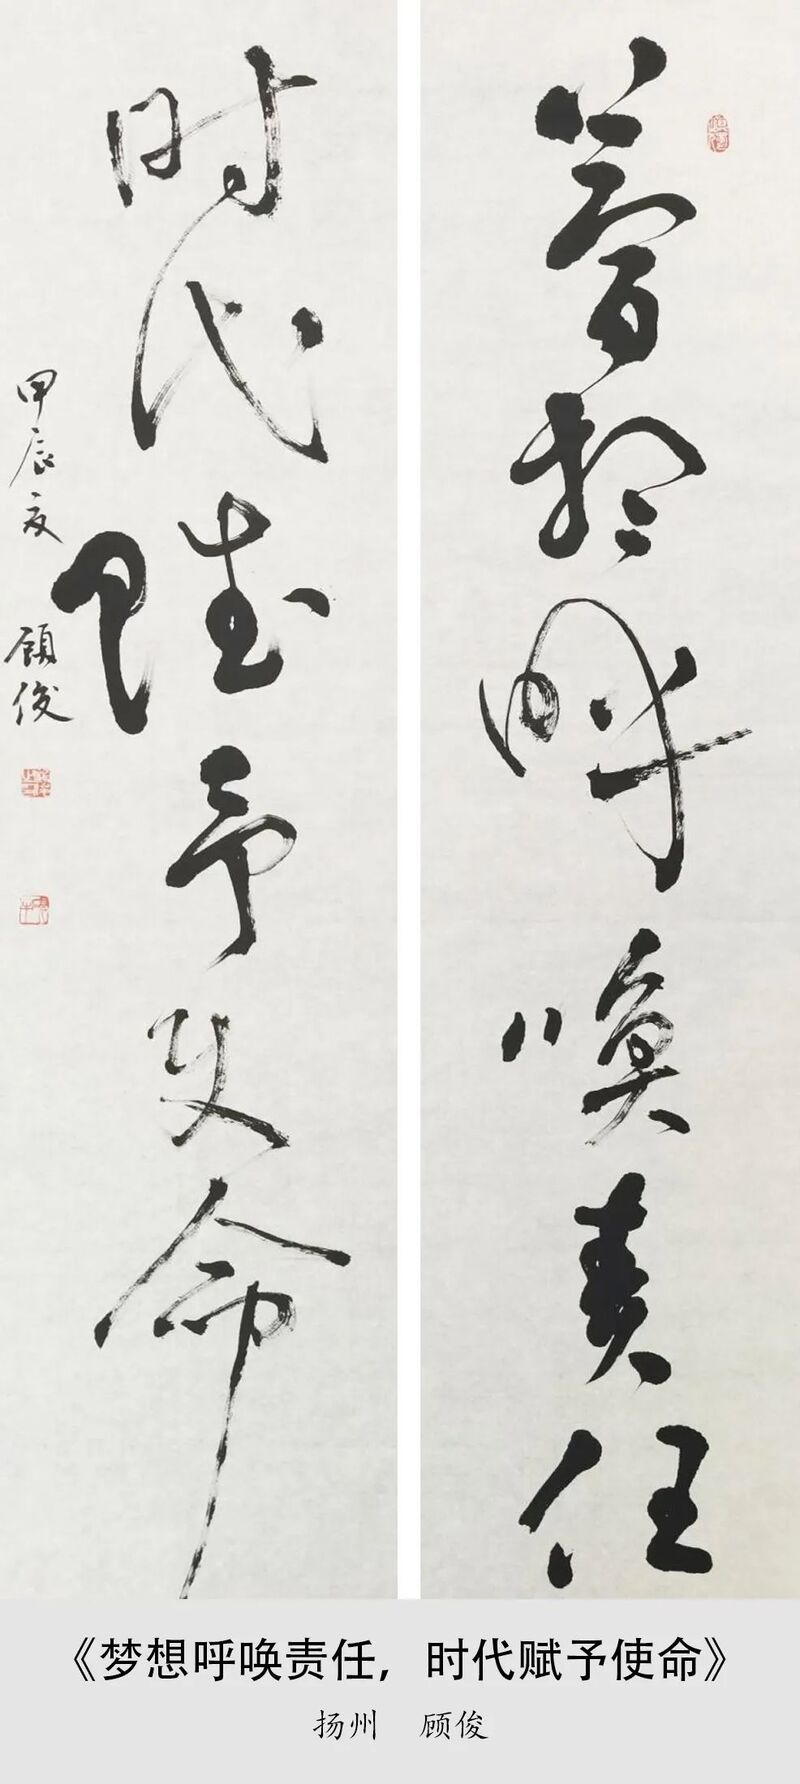 梦想呼唤责任
时代赋予使命
甲辰夏 顾俊
《梦想呼唤责任，时代赋予使命》
扬州 顾俊